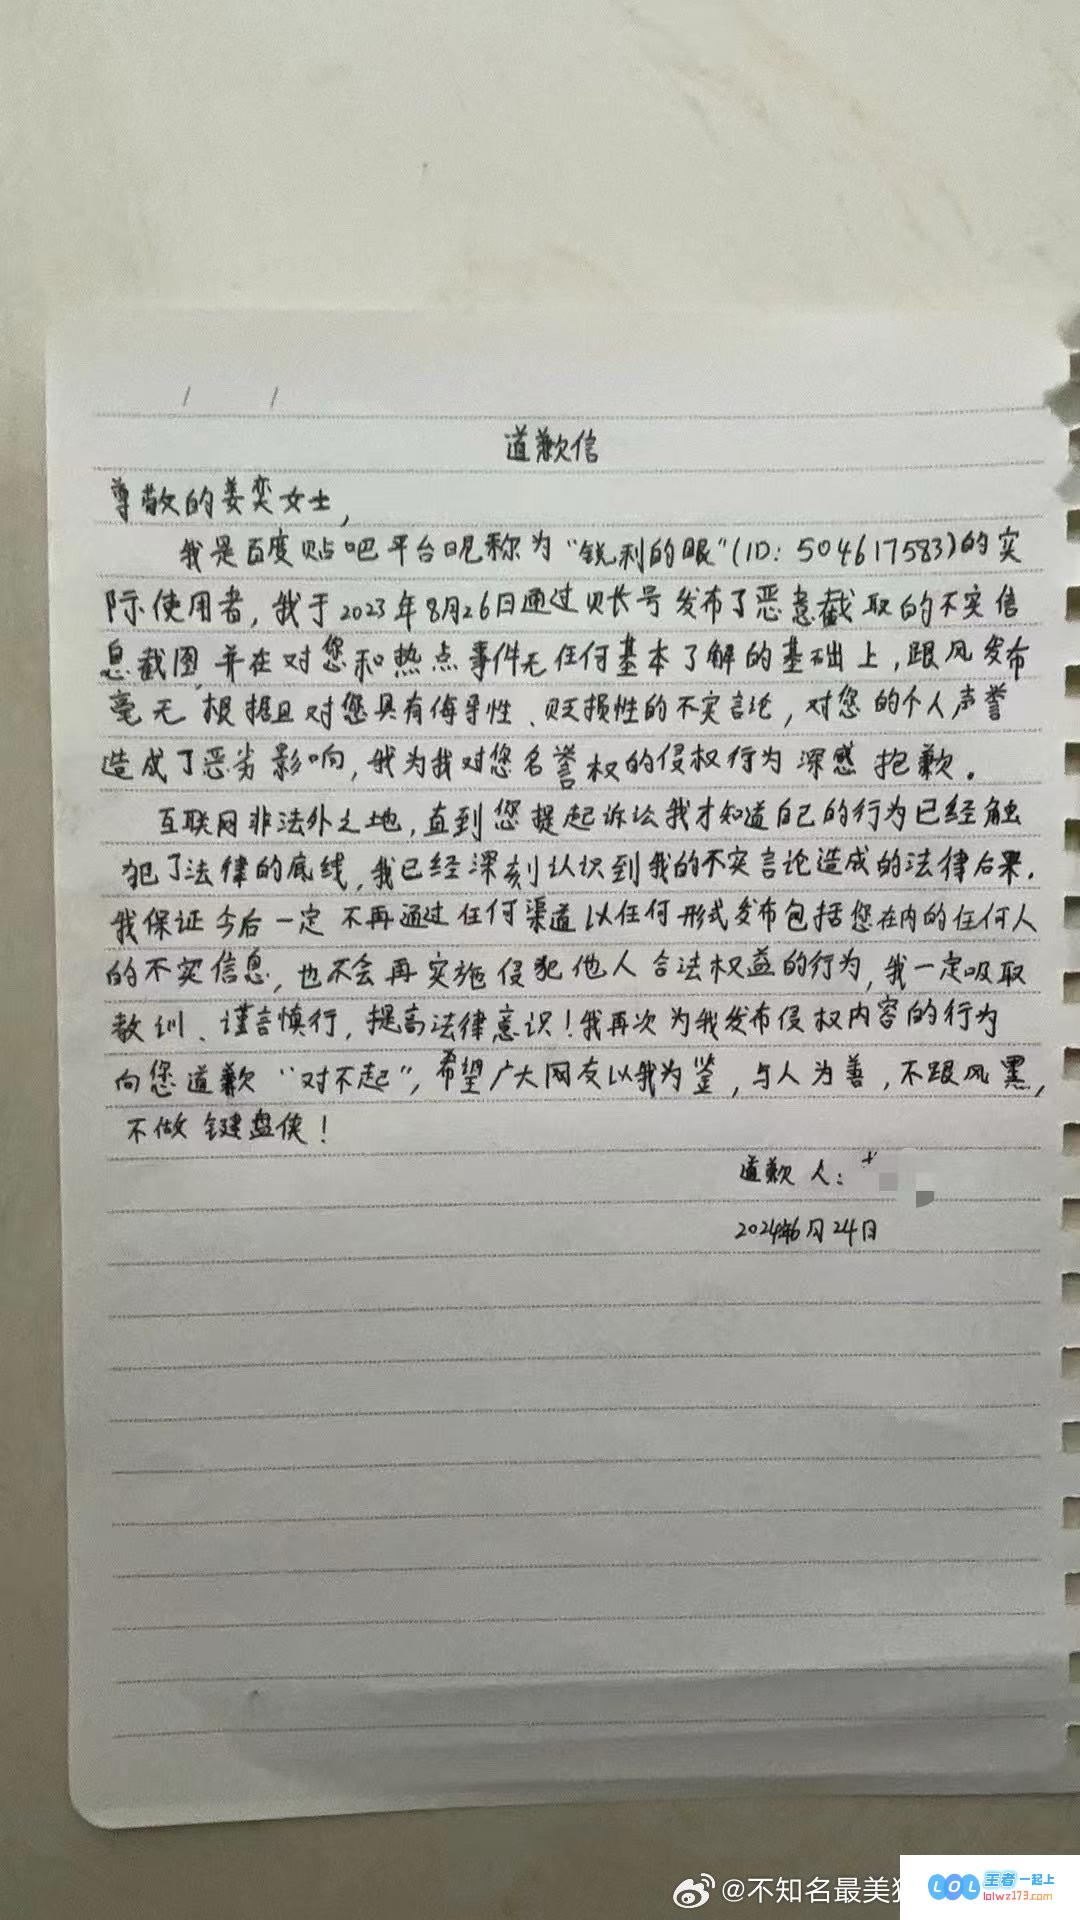 道歉信
尊敬的姜奕女士,
我是百度贴吧平台昵称为“锐利的眼”(ID:504617583)的实
际使用者,我于2023年8月26日通过账号发布了恶意截取的不实信
息截图,并在对您和热点事件无任何基本了解的基础上,跟风发布
毫无根据且对您具有侮辱性、贬损性的不实言论,对您的个人声誉
造成了恶劣影响,我为我对您名誉权的侵权行为深感抱歉。
互联网非法外之地,直到您提起诉讼我才知道自己的行为已经触
犯了法律的底线,我已经深刻认识到我的不实言论造成的法律后果.
我保证今后一定不再通过任何渠道以任何形式发布包括您在内的任何人
的不实信息,也不会再实施侵犯他人合法权益的行为,我一定吸取
教训、谨言慎行,提高法律意识!我再次为我发布侵权内容的行为
向您道歉“对不起”,希望广大网友以我为鉴,与人为善,不跟风黑,
不做键盘侠!
道歉人:
2024年6月24日
@不知名最美
LOL 王者一起上
lolwz173.com